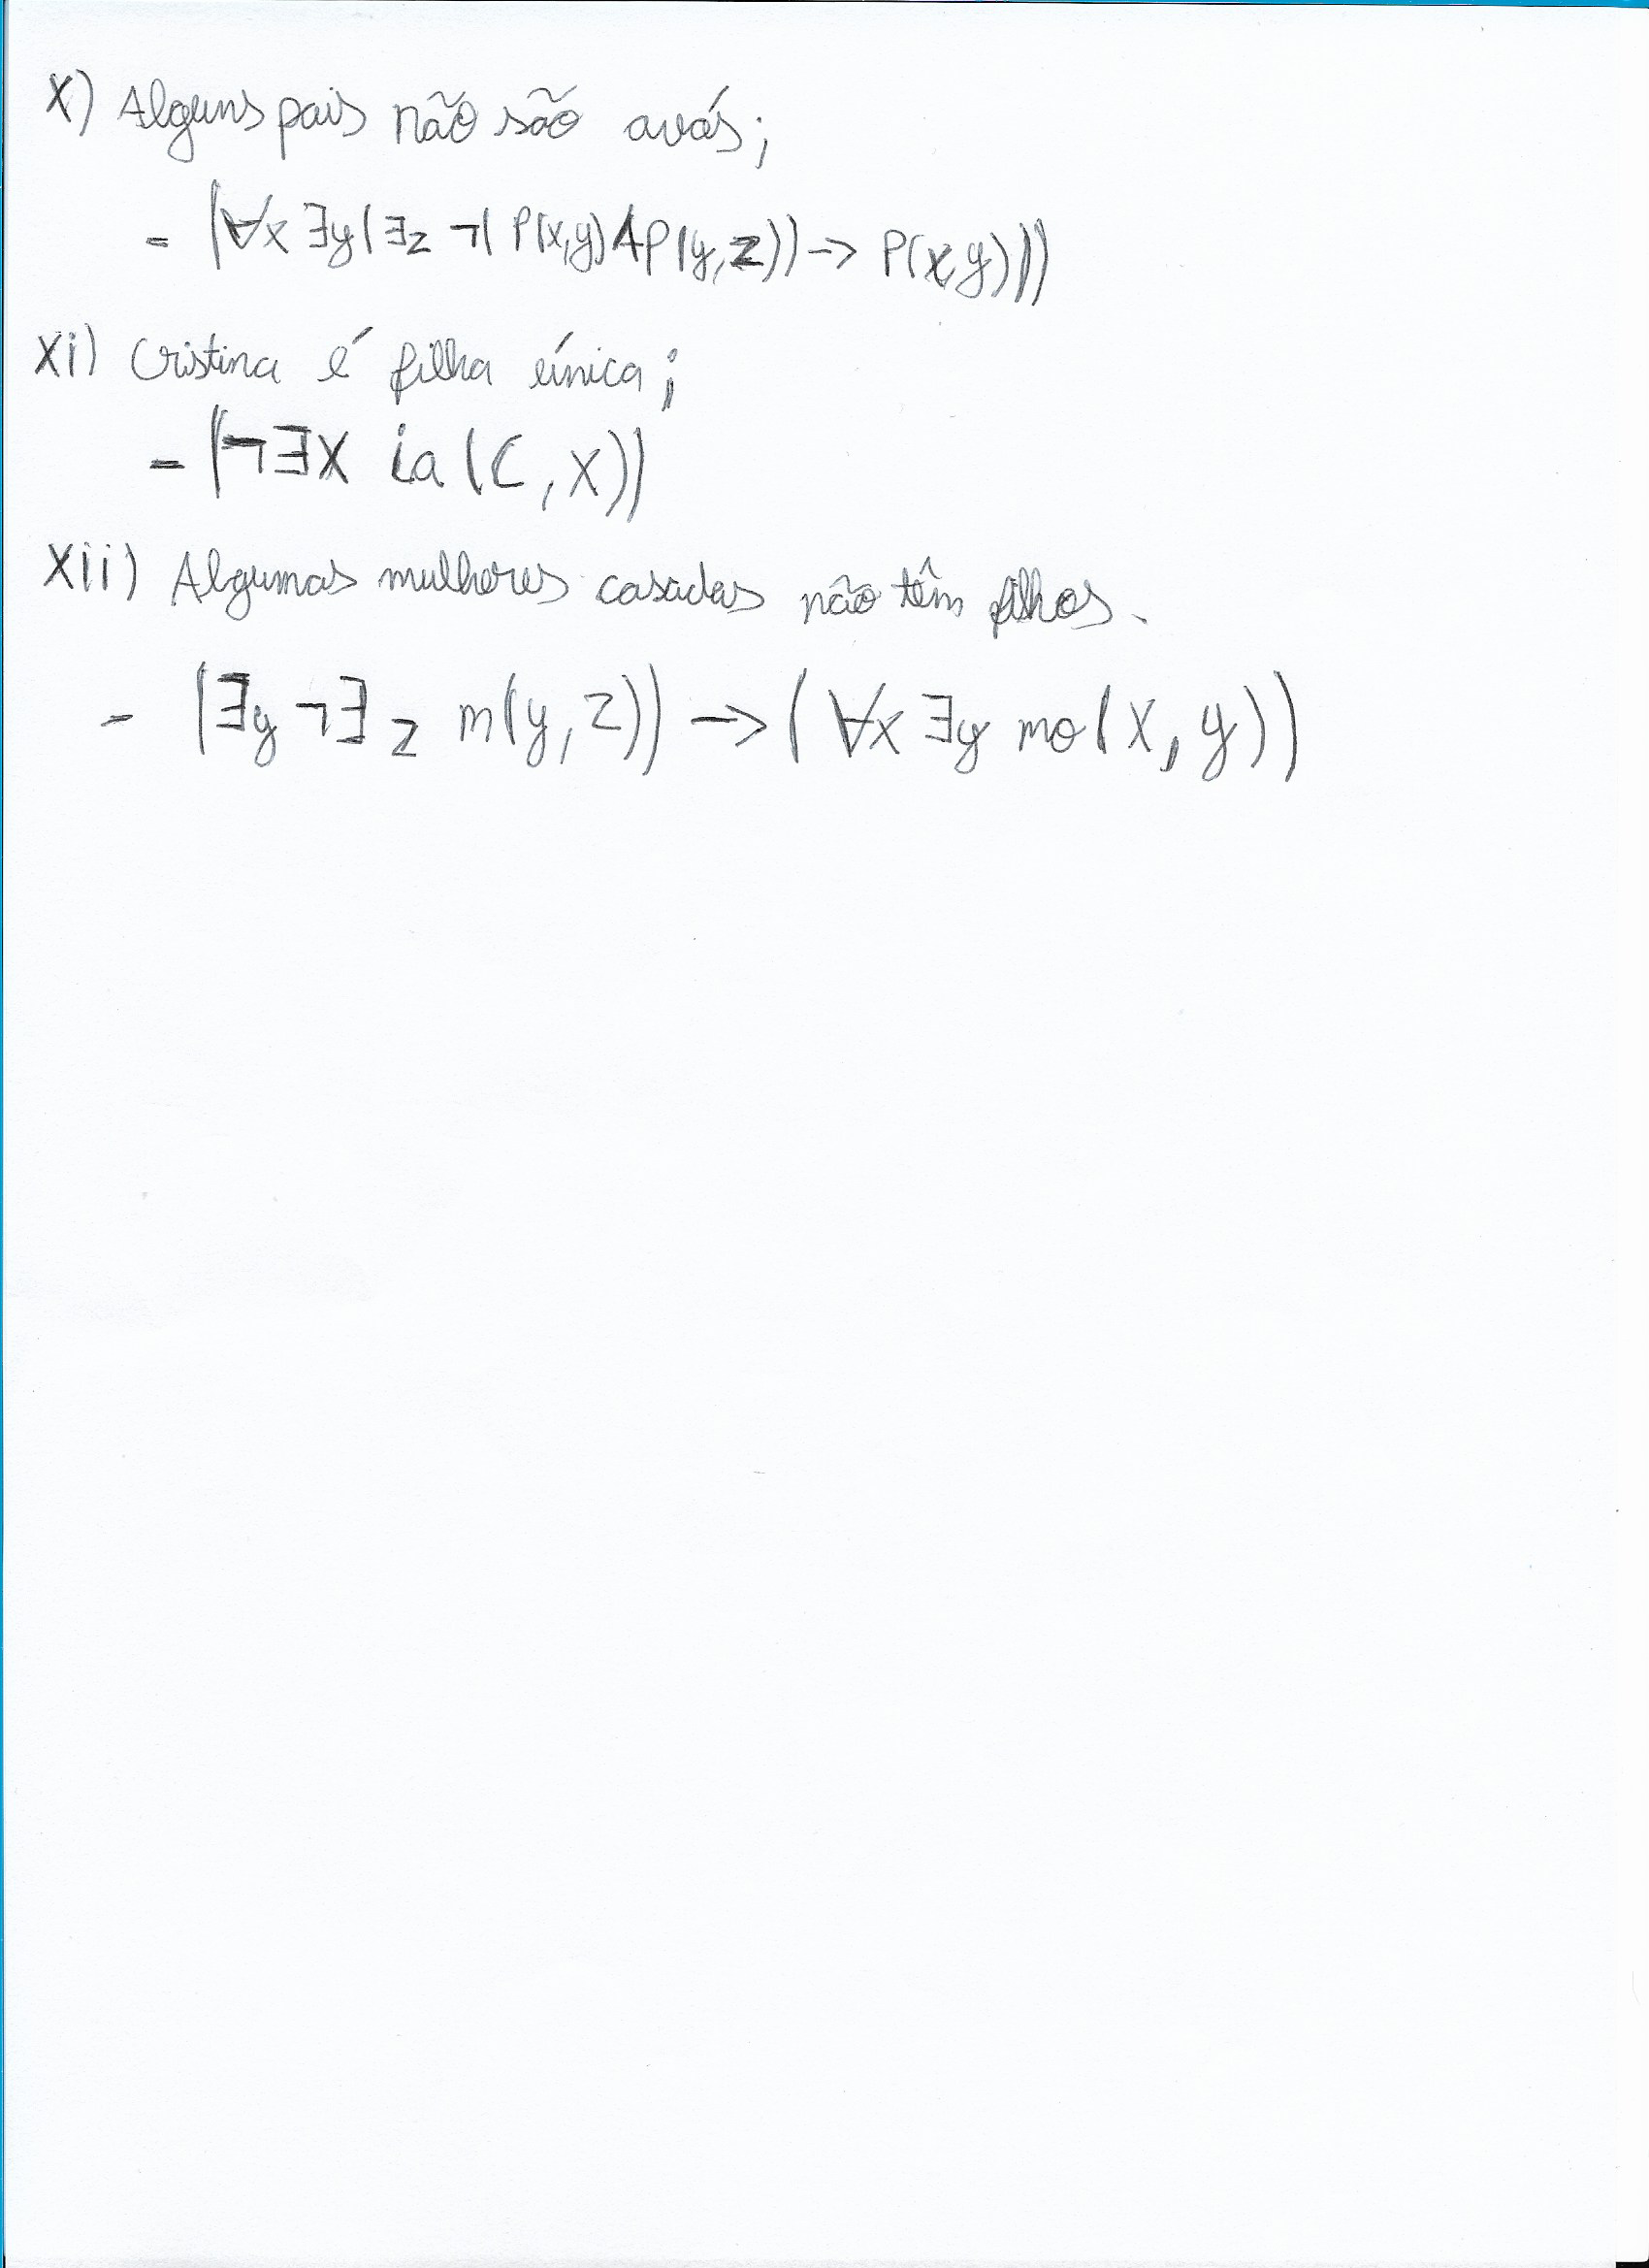 X) Alguns pais não são avós;
= (∀x ∃y(∃z ¬( P(x,y) ∧ P(y,z)) -> P(x,y)))
Xi) Cristina é filha única;
= (¬∃X ia (C, X))
Xii) Algumas mulheres casadas não têm filhos.
- (∃y ¬∃ z m(y, z)) -> ( ∀x ∃y mo(X, y))